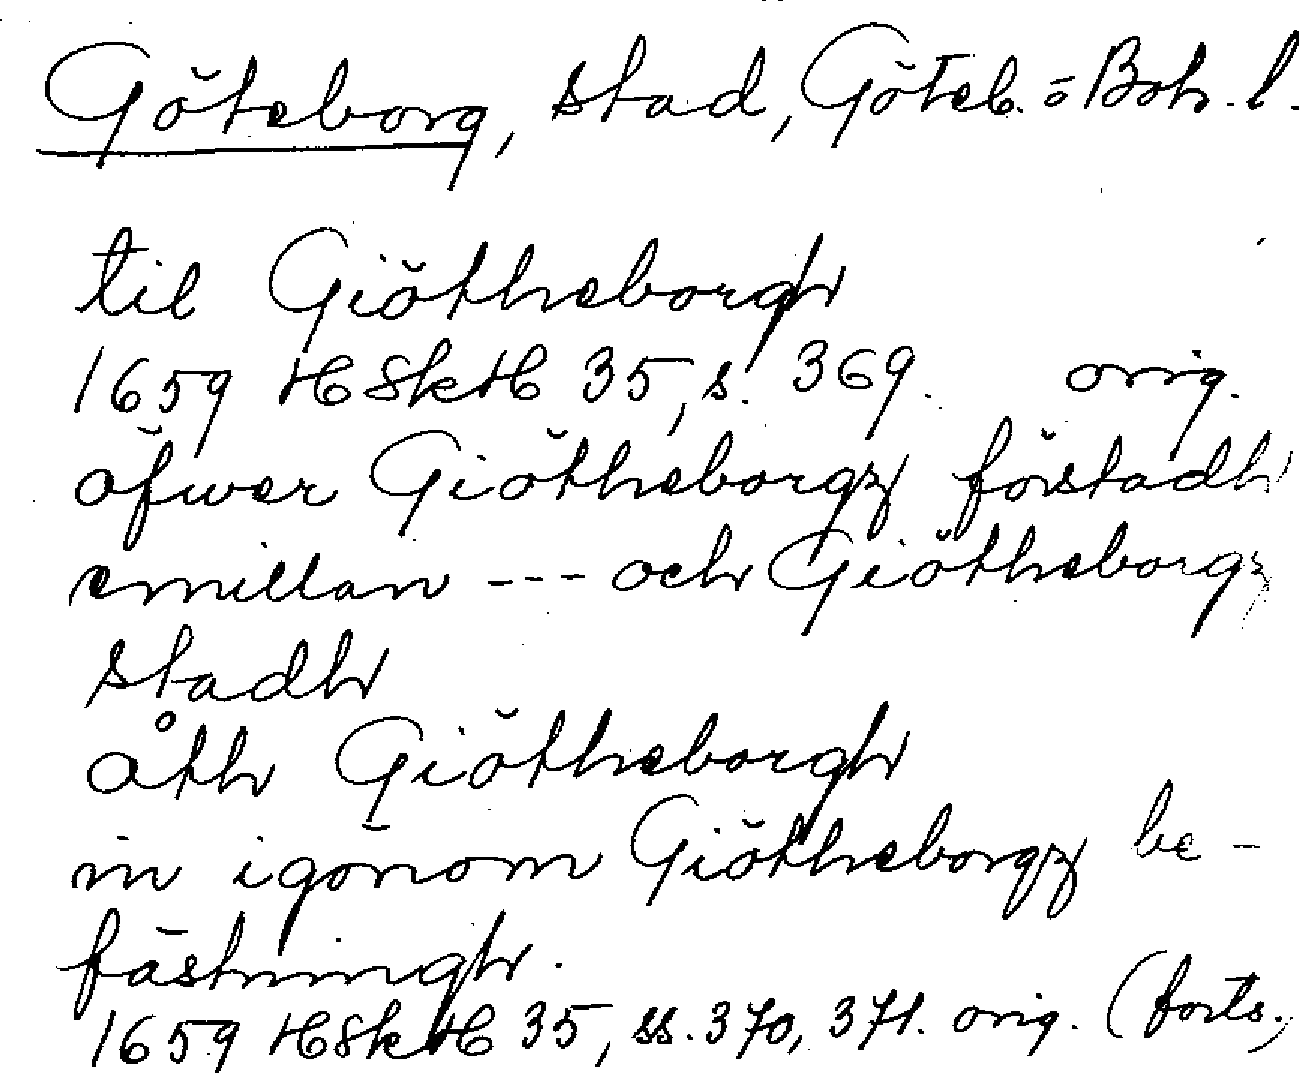 Göteborg, stad, Göteb. o Boh. l.
til Giötheborgh
1659 HSkH 35, s. 369. orig.
öfwer Giötheborgz förstadh
emillan --- och Giötheborgz
stadh
åth Giötheborgh
in igönom Giötheborgz be-
fästningh.
1659 HSkH 35, ss. 370, 371. orig. (forts.)